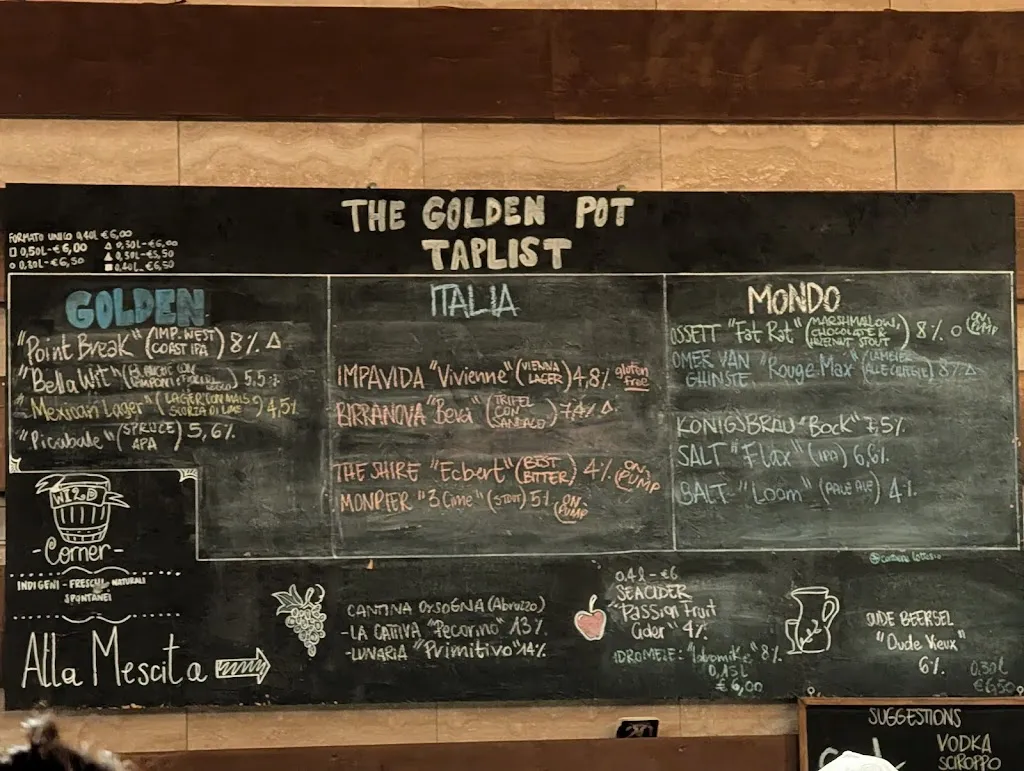 THE GOLDEN POT
TAPLIST
FORMATO UNICO 0,40L €6,00
□ 0,50L-€6,00 △ 0,30L-€6,00
○ 0,30L-€6,50 ▲ 0,30L-€5,50
■ 0,40L-€6,50
GOLDEN
"Point Break" (IMP. WEST COAST IPA) 8% △
"Bella Wit" 5,5%
"Mexican Lager" (LAGER CON MAIS E SCORZA DI LIME) 4,5%
"Picobale" (SPRUCE APA) 5,6%
ITALIA
IMPAVIDA "Vivienne" (VIENNA LAGER) 4,8% gluten free
BIRRANOVA (TRIPEL CON SANDALO) △
THE SHIRE "Ecbert" (BEST BITTER) 4% ON PUMP
MONPIER "3 Cime" (STOUT) 5% ON PUMP
MONDO
OSSETT "Fat Rat" (MARSHMALLOW, CHOCOLATE & HAZELNUT STOUT) 8% ○ ON PUMP
OMER VAN "Rouge Max" (LAMBIEK ALLE CILIEGIE) 8% △
GHINSTE
KÖNIGSBRÄU "Bock" 7,5%
SALT "Flax" (IPA) 6,6%
SALT "Loom" (PALE ALE) 4%
WILD
-Corner-
INDIGENI - FRESCHI - NATURALI
SPONTANEI
Alla Mescita
CANTINA OYSOGNA (Abruzzo)
-LA CATTIVA "Pecorino" 13%
-LUNARIA "Primitivo" 14%
0,4l-€6
SEACIDER
"Passion Fruit
Cider" 4%
IDROMELE: 8%
0,15L
€6,00
OUDE BEERSEL
"Oude Vieux"
6%
0,30L
€6,50
SUGGESTIONS
VODKA
SCIROPPO